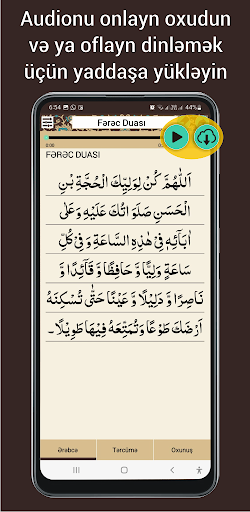 Audionu onlayn oxudun
və ya oflayn dinləmək
üçün yaddaşa yükləyin
6:54
44%
Fərəc Duası
0:00
FƏRƏC DUASI
اَللّٰهُمَّ كُنْ لِوَلِيِّكَ الْحُجَّةِ بْنِ
الْحَسَنِ صَلَوَاتُكَ عَلَيْهِ وَعَلٰى
اٰبَآئِهِ فِي هٰذِهِ السَّاعَةِ وَفِي كُلِّ
سَاعَةٍ وَلِيًّا وَ حَافِظًا وَ قَآئِدًا وَ
نَاصِرًا وَ دَلِيْلًا وَ عَيْنًا حَتّٰى تُسْكِنَهُ
اَرْضَكَ طَوْعًا وَ تُمَتِّعَهُ فِيْهَا طَوِيْلًا۔
Ərəbcə
Tərcümə
Oxunuş